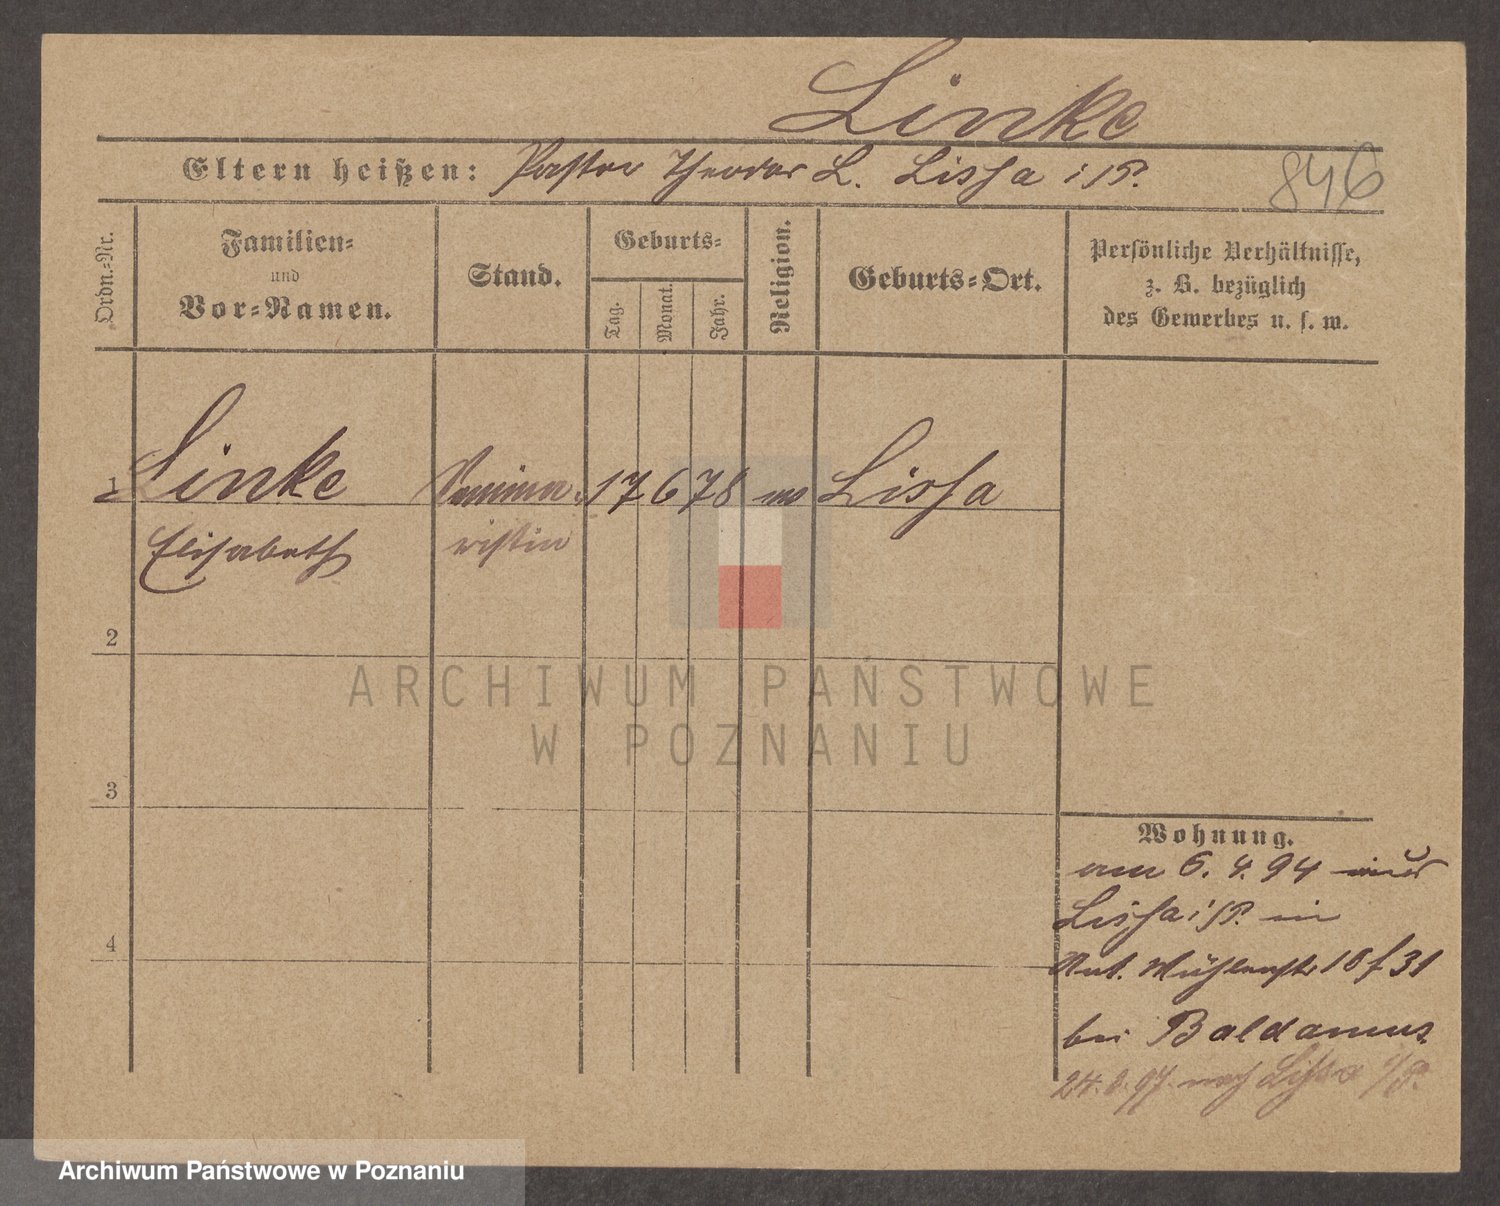 Linke
Eltern heißen: Pastor Theodor L. Lissa i/P.
846
Ordn.-Nr.
Familien-
und
Vor-Namen.
Stand.
Geburts-
Tag.
Monat.
Jahr.
Religion.
Geburts-Ort.
Persönliche Verhältnisse,
z. B. bezüglich
des Gewerbes u. s. w.
1 Linke Semina- 17 6 78 Lissa
Elisabeth ristin
2
3
4
Wohnung.
am 6. 4. 94
Lissa i/P. in
Mühlenstr. 10 f 31
bei Baldamus
nach Lissa i/P.
ARCHIWUM PAŃSTWOWE
W POZNANIU
Archiwum Państwowe w Poznaniu